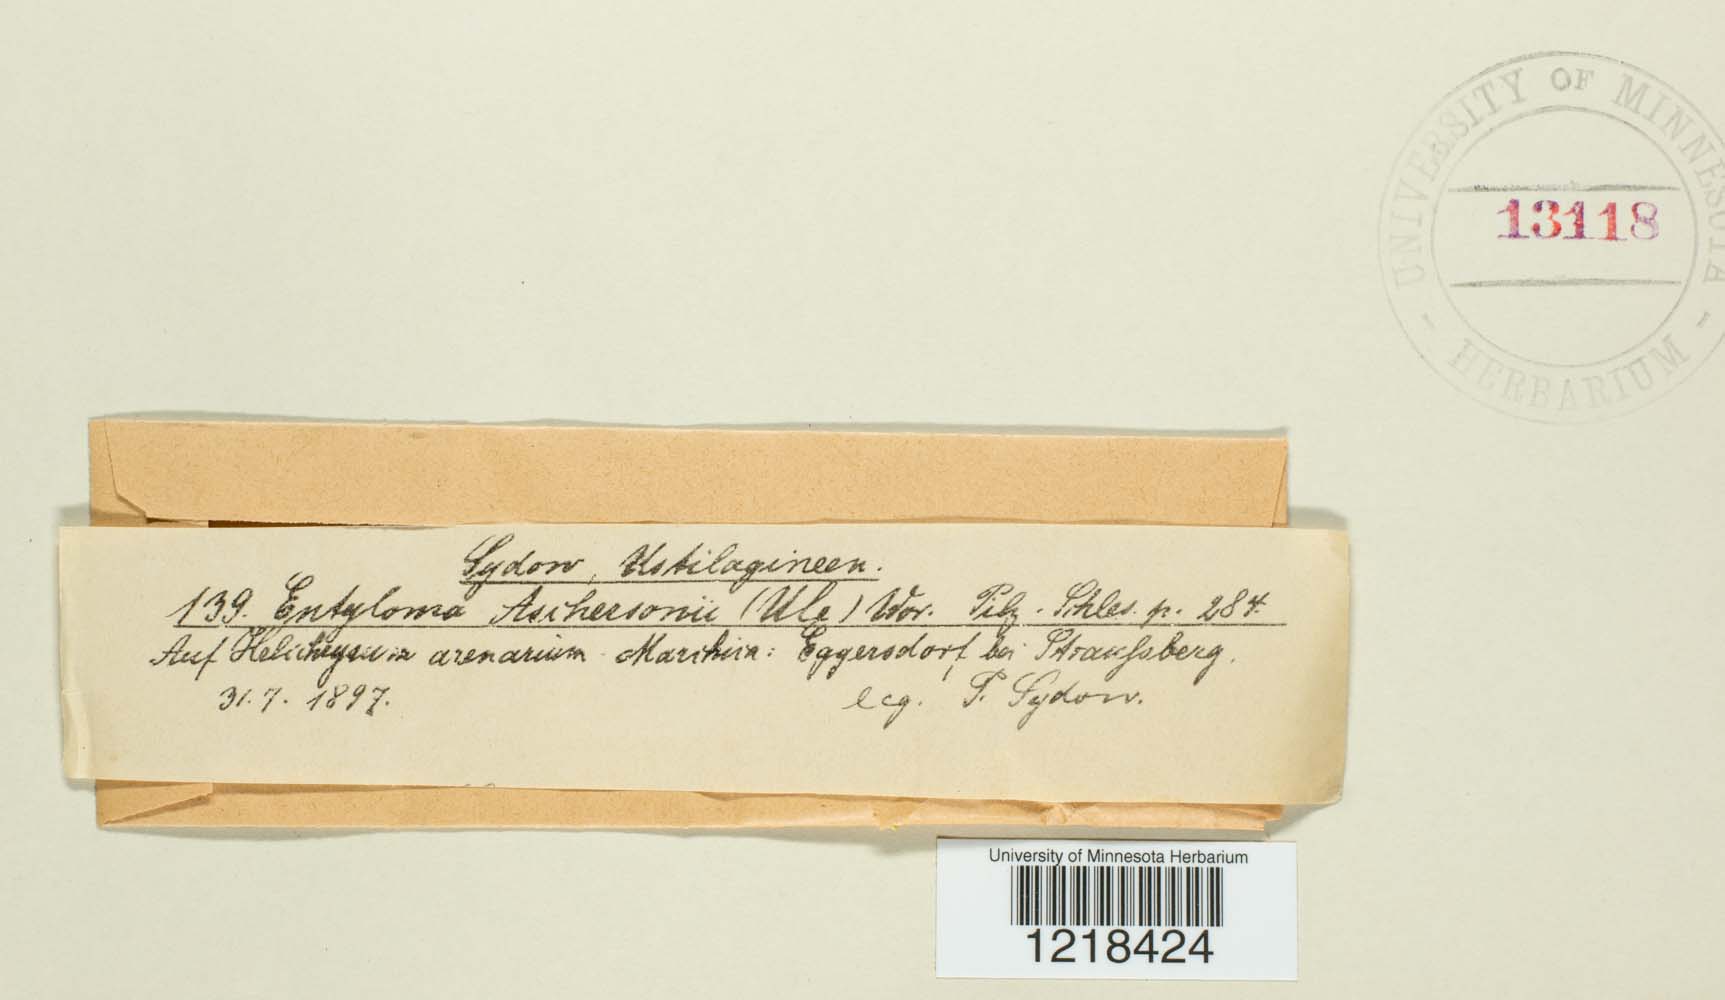 UNIVERSITY OF MINNESOTA
13118
- HERBARIUM -
Sydow, Ustilagineen.
139. Entyloma Aschersonii (Ule) Wor. Pilz. Schles. p. 287.
Auf Helichrysum arenarium. Marchia: Eggersdorf bei Straußberg.
31.7.1897.
leg. P. Sydow.
University of Minnesota Herbarium
1218424